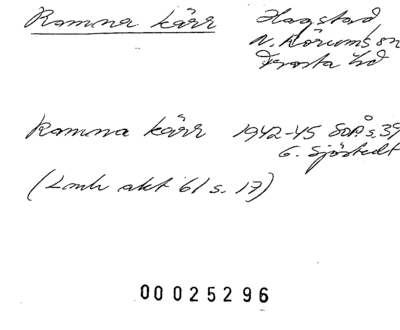 Ramna kärr Hagstad,
N. Rörums sn
Frosta hd
Ramna kärr 1942-45 SOÅ s. 39
G. Sjöstedt
(Lmh akt 61 s. 17)
00025296